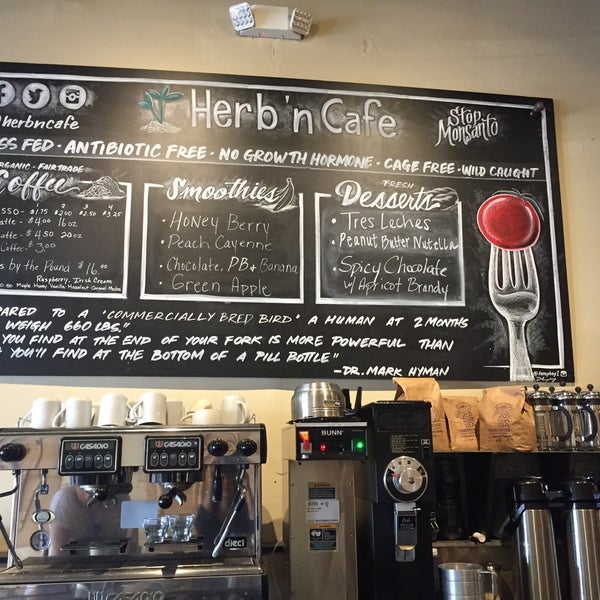 Herb'n Cafe
Stop
Monsanto
herbncafe
SS FED · ANTIBIOTIC FREE · NO GROWTH HORMONE · CAGE FREE · WILD CAUGHT
ORGANIC - FAIR TRADE
Coffee
1 2 3 4
ESSO - $1.75 $2.00 $2.50 $3.25
atte - $4.00 16oz
atte - $4.50 20oz
Coffee - $3.00
s by the Pound $16.00
Raspberry, Irish Cream
Maple, Honey, Vanilla, Hazelnut, Caramel, Mocha
Smoothies
• Honey Berry
• Peach Cayenne
• Chocolate, PB + Banana
• Green Apple
FRESH
Desserts
• Tres Leches
• Peanut Butter Nutella
• Spicy Chocolate
w/ Apricot Brandy
PARED TO A "COMMERCIALLY BRED BIRD" A HUMAN AT 2 MONTHS
WEIGH 660 LBS."
YOU FIND AT THE END OF YOUR FORK IS MORE POWERFUL THAN
YOU'LL FIND AT THE BOTTOM OF A PILL BOTTLE"
-DR. MARK HYMAN
CASADIO
CASADIO
dieci
CASADIO
BUNN